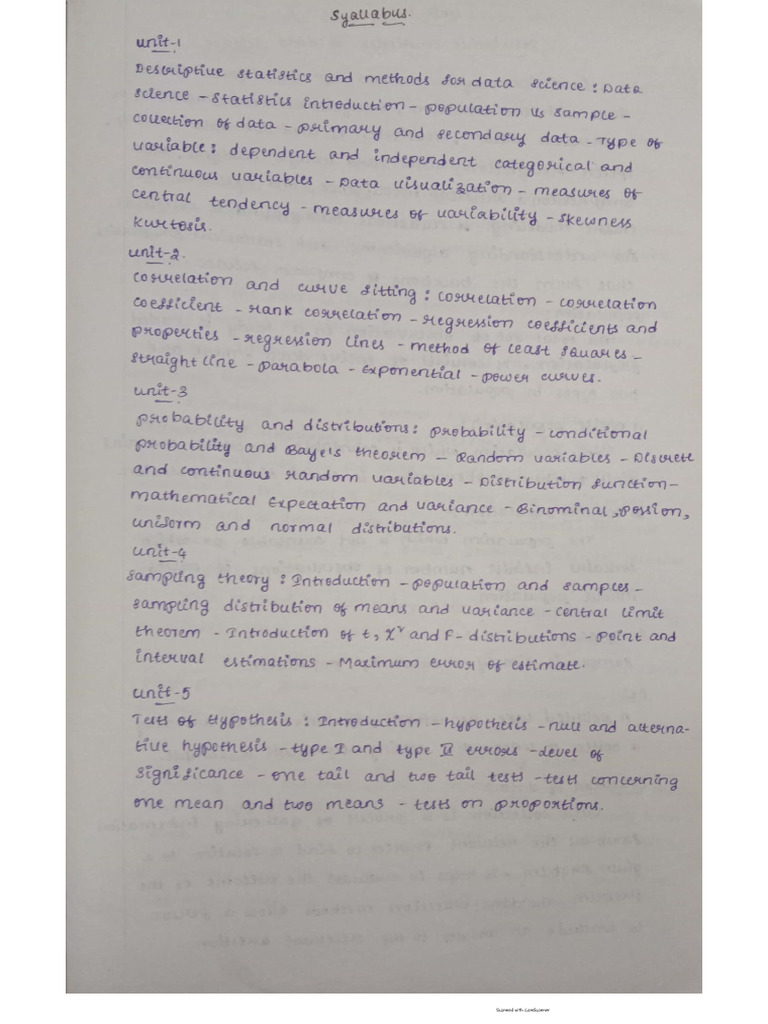 Syallabus.
unit-1
Descriptive statistics and methods for data science : Data
science - statistics introduction - population vs sample -
collection of data - primary and secondary data - Type of
variable : dependent and independent categorical and
continuous variables - Data visualization - measures of
central tendency - measures of variability - skewness
Kurtosis.
unit-2.
correlation and curve fitting : correlation - correlation
coefficient - rank correlation - regression coefficients and
properties - regression lines - method of least squares -
straight line - parabola - exponential - power curves.
unit-3
probability and distributions : probability - conditional
probability and Baye's theorem - Random variables - Discrete
and continuous random variables - Distribution function -
mathematical Expectation and variance - Binominal, possion,
uniform and normal distributions.
unit-4
sampling theory : Introduction - population and samples -
sampling distribution of means and variance - central limit
theorem - Introduction of t, χ² and F- distributions - point and
interval estimations - Maximum error of estimate.
unit-5
Tests of Hypothesis : Introduction - hypothesis - null and alterna-
tive hypothesis - type I and type II errors - level of
significance - one tail and two tail tests - tests concerning
one mean and two means - tests on proportions.
Scanned with CamScanner